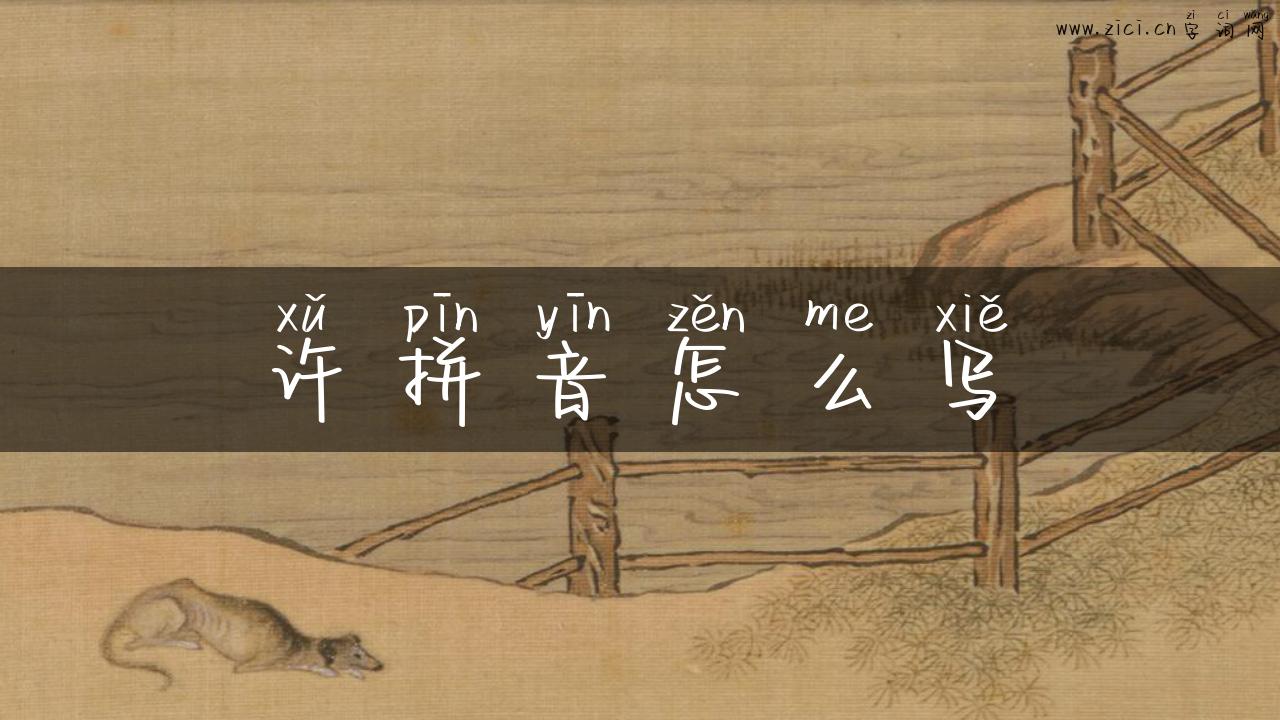 zì cí wǎng
www.zici.cn 字词网
xǔ pīn yīn zěn me xiě
许拼音怎么写